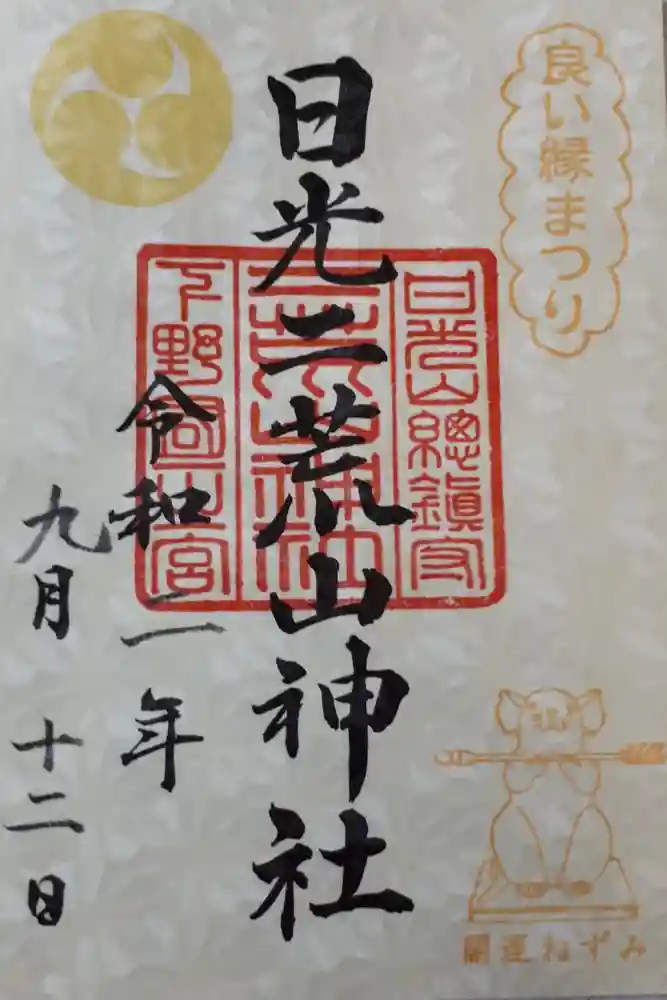 良い縁まつり
日光二荒山神社
日光山総鎮守
二荒山神社
下野國一宮
令和二年
九月十二日
開運ねずみ